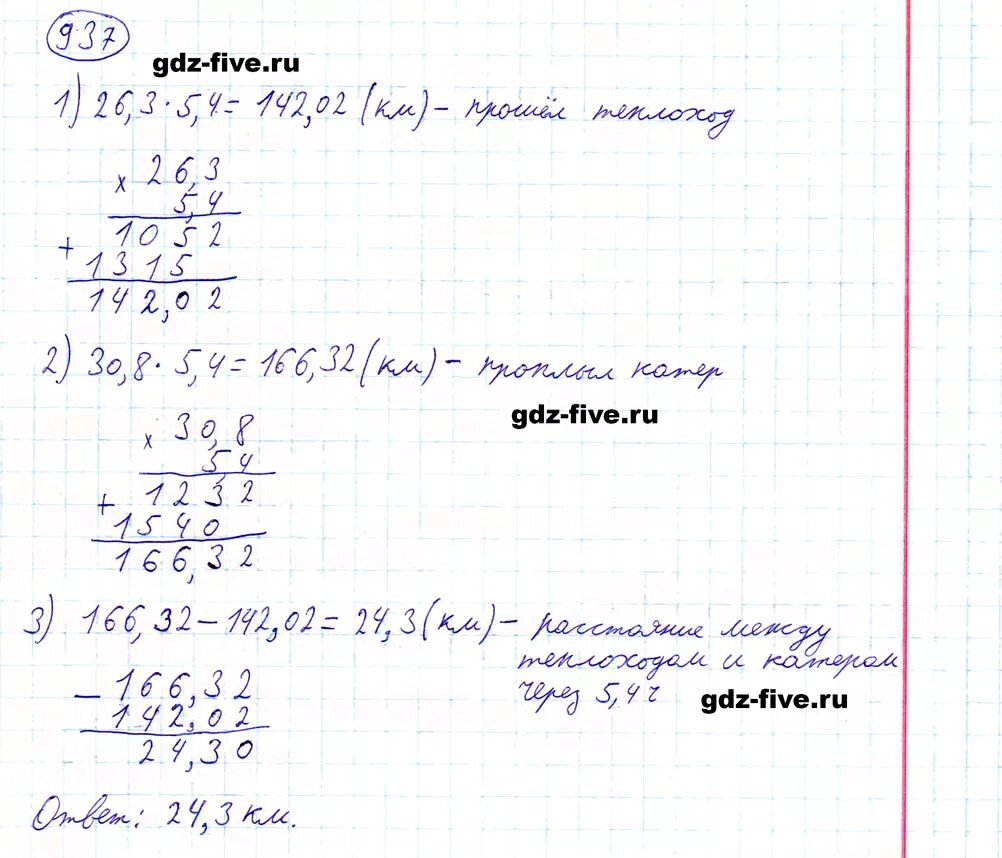 937
gdz-five.ru
1) 26,3 · 5,4 = 142,02 (км) – прошёл теплоход
× 26,3
5,4
1052
+ 1315
142,02
2) 30,8 · 5,4 = 166,32 (км) – проплыл катер
gdz-five.ru
× 30,8
5,4
+ 1232
1540
166,32
3) 166,32 – 142,02 = 24,3 (км) – расстояние между
теплоходом и катером
через 5,4 ч
gdz-five.ru
– 166,32
142,02
24,30
Ответ: 24,3 км.